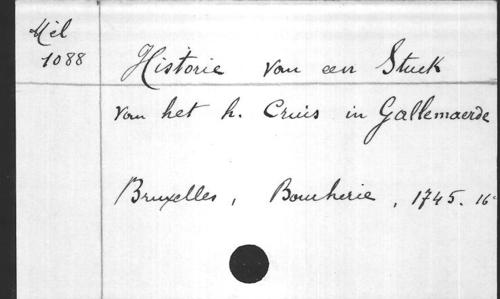 Mél
1088
Historie van een Stuck
van het h. Cruis in Gallemaerde
Bruxelles, Boucherie, 1745. 16°